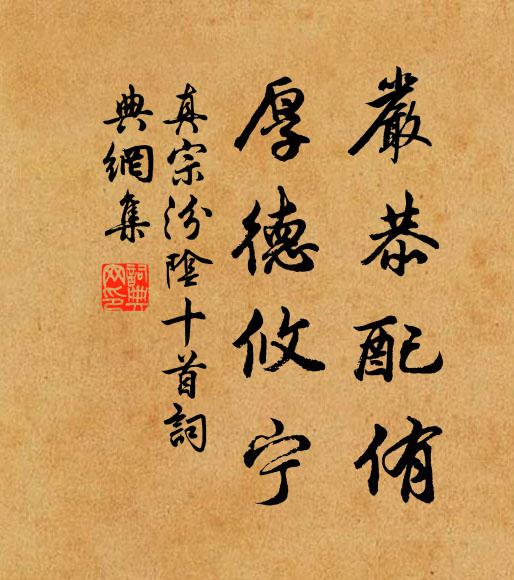 嚴恭配侑
厚德攸宁
真宗汾陰十首詞
典網集
詞典網印